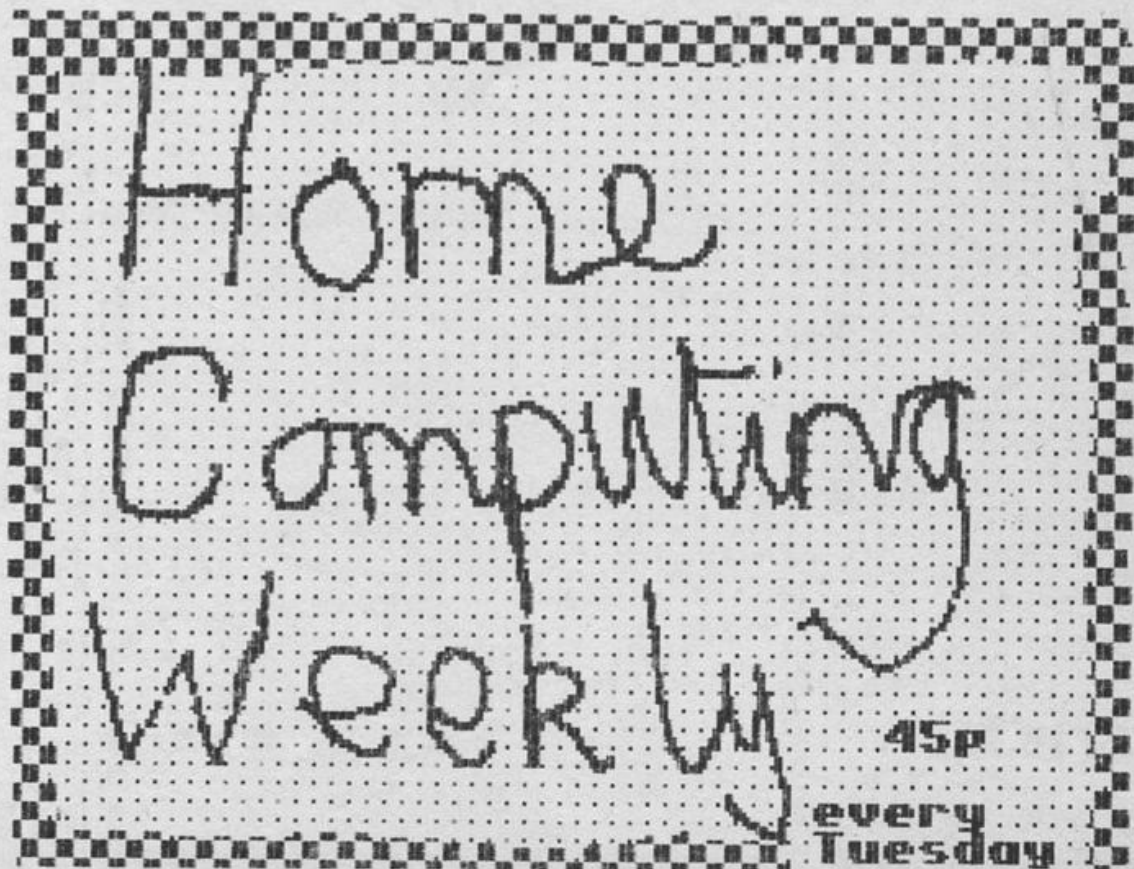 Home
Computing
Weekly
45p
every
Tuesday